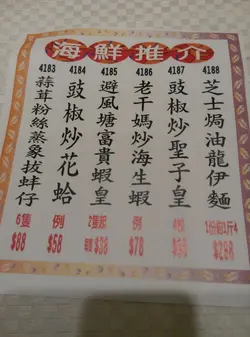 海鮮推介
4183
蒜茸粉絲蒸象拔蚌仔
6隻
$88
4184
豉椒炒花蛤
例
$58
4185
避風塘富貴蝦皇
2隻起
每隻$38
4186
老干媽炒海生蝦
例
$78
4187
豉椒炒聖子皇
4188
芝士焗油龍伊麵
$288